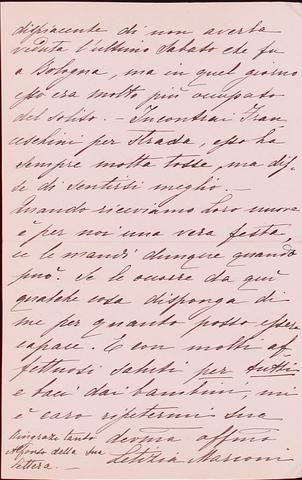 dispiacente di non averla
veduta l'ultimo Sabato che fu
a Bologna, ma in quel giorno
esso era molto più occupato
del solito. — Incontrai Fran
ceschini per strada, esso ha
sempre molta tosse, ma dis-
se di sentirsi meglio. —
Quando riceviamo loro nuove
è per noi una vera festa,
ce le mandi dunque quando
può. Se le occorre da qui
qualche cosa disponga di
me per quanto posso essere
capace. E con molti af
fettuosi saluti per tutti
e baci dai bambini, mi
è caro ripetermi sua
devma affma
Letizia Marconi
Ringrazi tanto
Alfonso della sua
lettera. —